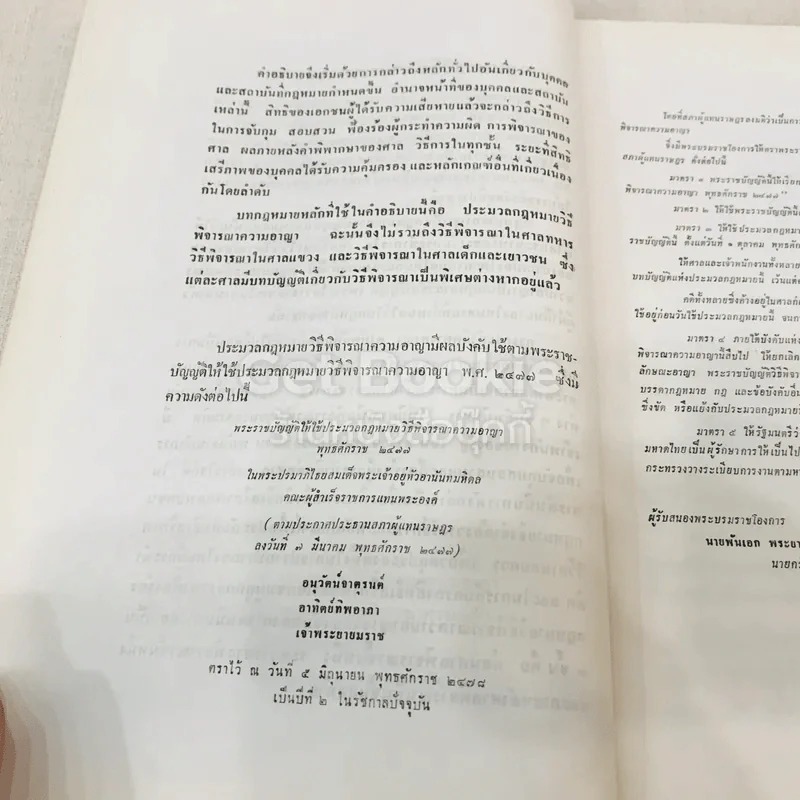 คำอธิบายจึงเริ่มด้วยการกล่าวถึงหลักทั่วไปอันเกี่ยวกับบุคคล
และสถาบันที่กฎหมายกำหนดขึ้น อำนาจหน้าที่ของบุคคลและสถาบัน
เหล่านี้ สิทธิของเอกชนผู้ได้รับความเสียหายแล้วจะกล่าวถึงวิธีการ
ในการจับกุม สอบสวน ฟ้องร้องผู้กระทำความผิด การพิจารณาของ
ศาล ผลภายหลังคำพิพากษาของศาล วิธีการในทุกชั้น ระยะที่สิทธิ
เสรีภาพของบุคคลได้รับความคุ้มครอง และหลักเกณฑ์อื่นที่เกี่ยวเนื่อง
กันโดยลำดับ
บทกฎหมายหลักที่ใช้ในคำอธิบายนี้คือ ประมวลกฎหมายวิธี
พิจารณาความอาญา ฉะนั้นจึงไม่รวมถึงวิธีพิจารณาในศาลทหาร
วิธีพิจารณาในศาลแขวง และวิธีพิจารณาในศาลเด็กและเยาวชน ซึ่ง
แต่ละศาลมีบทบัญญัติเกี่ยวกับวิธีพิจารณาเป็นพิเศษต่างหากอยู่แล้ว
ประมวลกฎหมายวิธีพิจารณาความอาญามีผลบังคับใช้ตามพระราช-
บัญญัติให้ใช้ประมวลกฎหมายวิธีพิจารณาความอาญา พ.ศ. ๒๔๗๗ ซึ่งมี
ความดังต่อไปนี้
Get Bookie
ร้านหนังสือบุ๊กกี้
พระราชบัญญัติให้ใช้ประมวลกฎหมายวิธีพิจารณาความอาญา
พุทธศักราช ๒๔๗๗
ในพระปรมาภิไธยสมเด็จพระเจ้าอยู่หัวอานันทมหิดล
คณะผู้สำเร็จราชการแทนพระองค์
(ตามประกาศประธานสภาผู้แทนราษฎร
ลงวันที่ ๗ มีนาคม พุทธศักราช ๒๔๗๗)
อนุวัตน์จาตุรนต์
อาทิตย์ทิพอาภา
เจ้าพระยายมราช
ตราไว้ ณ วันที่ ๕ มิถุนายน พุทธศักราช ๒๔๗๘
เป็นปีที่ ๒ ในรัชกาลปัจจุบัน
โดยที่สภาผู้แทนราษฎรลงมติว่าเป็นการ
พิจารณาความอาญา
จึงมีพระบรมราชโองการให้ตราพระรา
สภาผู้แทนราษฎร ดังต่อไปนี้
มาตรา ๑ พระราชบัญญัตินี้ให้เรียก
พิจารณาความอาญา พุทธศักราช ๒๔๗๗"
มาตรา ๒ ให้ใช้พระราชบัญญัตินี้
มาตรา ๓ ให้ใช้ประมวลกฎหมาย
ราชบัญญัตินี้ ตั้งแต่วันที่ ๑ ตุลาคม พุทธศัก
ให้ศาลและเจ้าพนักงานทั้งหลาย
บทบัญญัติแห่งประมวลกฎหมายนี้ เว้นแต่
คดีทั้งหลายซึ่งค้างอยู่ในศาลก็
ใช้อยู่ก่อนวันใช้ประมวลกฎหมายนี้ จนกว่
มาตรา ๔ ภายใต้บังคับแห่ง
พิจารณาความอาญานี้สืบไป ให้ยกเลิก
ลักษณะอาญา พระราชบัญญัติวิธีพิจา
บรรดากฎหมาย กฎ และข้อบังคับอื่น
ซึ่งขัด หรือแย้งกับประมวลกฎหมายวิ
มาตรา ๕ ให้รัฐมนตรีว่า
มหาดไทยเป็นผู้รักษาการให้เป็นไป
กระทรวงวางระเบียบการงานตามห
ผู้รับสนองพระบรมราชโองการ
นายพันเอก พระยา
นายก